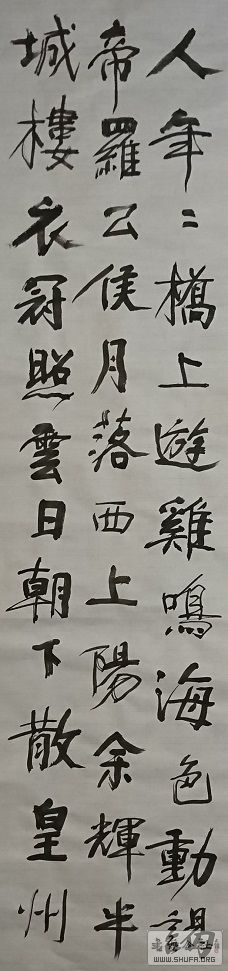 人年〻橋上遊雞鳴海色動謁
帝羅公侯月落西上陽余輝半
城樓衣冠照雲日朝下散皇州
WWW.SHUFA.ORG